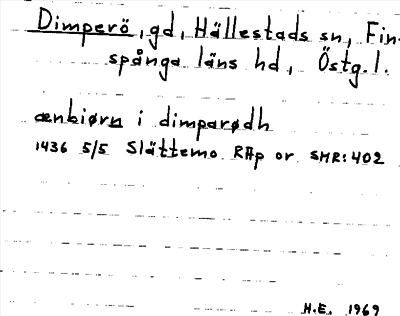 Dimperö, gd, Hällestads sn, Fin-
spånga läns hd, Östg.l.
ænbiørn i dimparødh
1436 5/5 Slättemo RAp or SMR:402
H.E. 1969